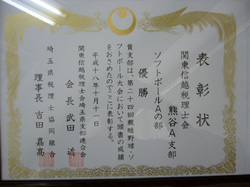 表彰状
関東信越税理士会
熊谷A支部
ソフトボールAの部
優勝
貴支部は、第二十四回親睦野球・ソ
フトボール大会において頭書の成績
をおさめたのでここに表彰する。
平成十八年十月十一日
関東信越税理士会埼玉県支部連合会
会長 武田
埼玉県税理士協同組合
理事長 吉田 嘉高